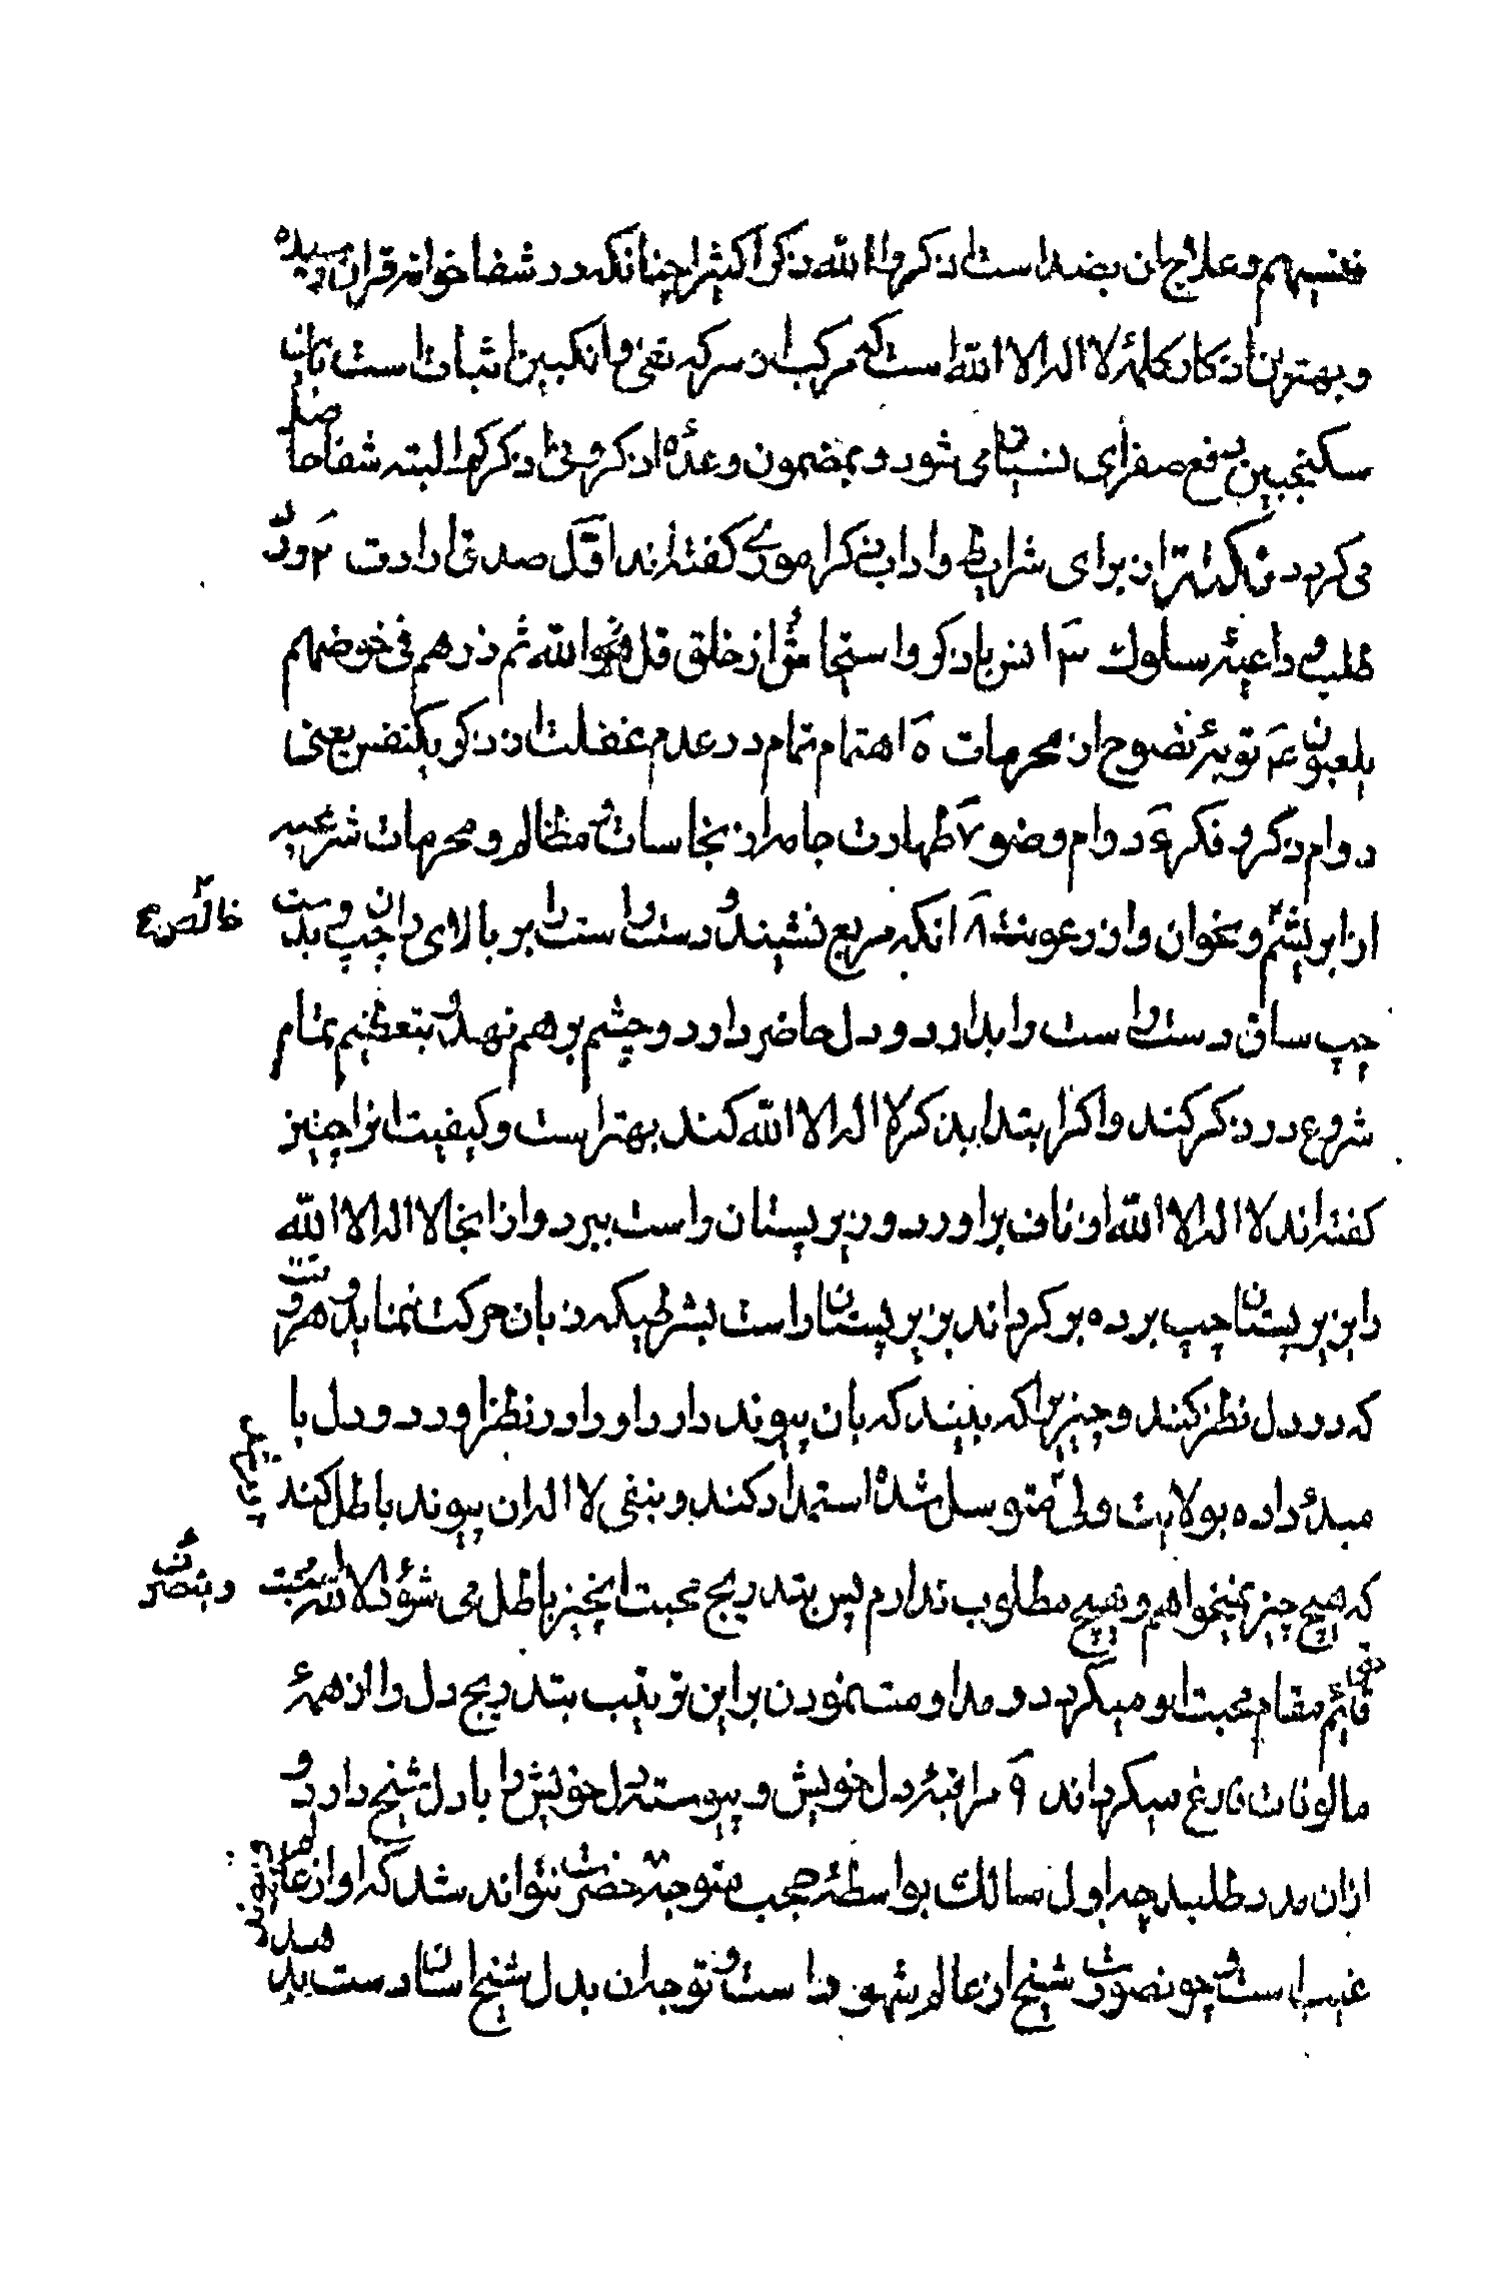 فنسیهم و علاج ان بضد است اذکروا الله ذکرا کثیرا چنانکه در شفاخوانه قران رسیده
و بهترین اذکار کلمهٔ لا اله الا الله است که مرکب از سرکه نفی و انکبین اثبات است باین
سکنجبین دفع صفرای نسیان می شود و بمضمون وعدهٔ اذکرونی اذکرکم البته شفا حاصل
می کردد نکته تر ان برای شرایط و اداب ذکر امورے کفته اند اوّل صدق ارادت ۲ درد
طلب و داعیهٔ سلوک ۳ انس با ذکر و استیحاش از خلق قل الله ثم ذرهم فی خوضهم
یلعبون ۴ توبهٔ نصوح از محرمات ۵ اهتمام تمام در عدم غفلت از ذکر یکنفس یعنی
دوام ذکر و فکر ۶ دوام وضو ۷ طهارت جامه از نجاسات و مظالم و محرمات شرعیه
از ابریشم و نحو ان و از رعونت ۸ انکه مربع نشیند و دست راست را بر بالای ران چپ و بدست
خالص ع
چپ ساق دست راست را بدارد و دل حاضر دارد و چشم برهم نهد و بتعظیم تمام
شروع در ذکر کند و اکر ابتدا بذکر لا اله الا الله کند بهتر است و کیفیت انرا چنین
کفته اند لا اله الا الله از ناف براورد و زیر پستان راست ببرد و از انجا لا اله الا الله
را بزیر پستان چپ برده برکرداند بزیر پستان راست بشرطیکه زبان حرکت ننماید و هر وقت
که در دل نظر کند و چیزیرا که بیند که بان پیوند دارد او را در نظر اورد و دل با
مبدٔ داده بولایت ولی متوسل شده استمداد کند و بنفی لا اله ان پیوند باطل کند
که هیچ چیز نمیخواهم و هیچ مطلوب ندارم پس بتدریج محبت انچیز باطل می شود و الا الله محبت
و بتصرف
قائم مقام محبت او میکردد و مداومت نمودن براین ترتیب بتدریج دل را از همهٔ
مالوفات فارغ میکرداند ۹ مراقبهٔ دل خویش و پیوسته دل خویش را با دل شیخ دارد و
ازان مدد طلبد چه اول سالک بواسطهٔ حجب متوجه حضرت نتواند شد که او از عالم
غیب است و چون صورت شیخ از عالم شهود است و توجه ان بدل شیخ اسان دست بدهد